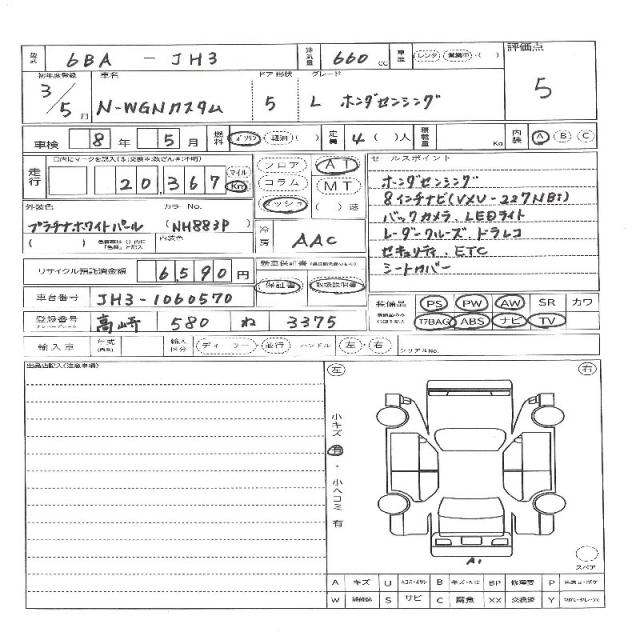 型式 6BA - JH3 排気量 660 cc 車歴 レンタ・営業中・( ) 評価点
初年度登録 車名 ドア 形状 グレード
3/5月 N-WGNカスタム 5 L ホンダセンシング 5
車検 8年 5月 燃料 ガソリン・軽油( ) 定員 4( )人 積載量 Kg 内装 A B C
走行 20,367 マイル Km フロア AT セールスポイント
コラム MT ホンダセンシング
外装色 カラーNo. ( )速 8インチナビ(VXU-227NBi)
プラチナホワイトパール (NH883P) バックカメラ、LEDライト
( ) 内装色 冷房 AAC レーダークルーズ、ドラレコ
セキュリティ、ETC
リサイクル預託済金額 6,590円 シートカバー
保証書 取扱説明書
車台番号 JH3-1060570 装備品 PS PW AW SR カワ
登録番号 高崎 580 ね 3375 ABS ナビ TV
輸入車 年式 輸入区分 ディーラー・並行 ハンドル 左・右 シリアルNo.
出品店記入(注意事項) 左 右
小キズ 有・小ヘコミ 有
A1
スペア
A キズ U B BP P
W S サビ C 腐食 XX 交換済 Y